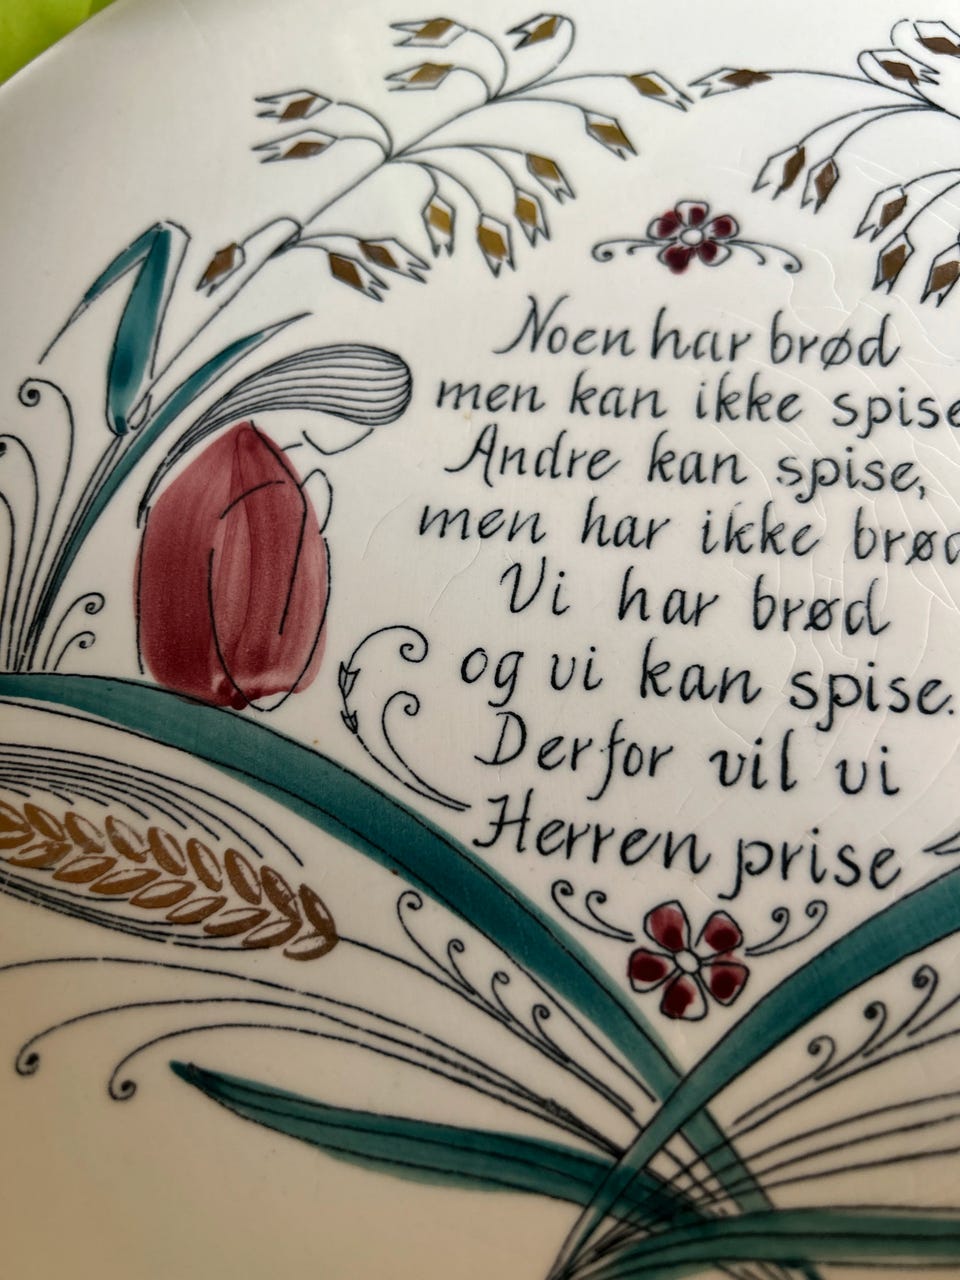 Noen har brød
men kan ikke spise
Andre kan spise,
men har ikke brød
Vi har brød
og vi kan spise.
Derfor vil vi
Herren prise